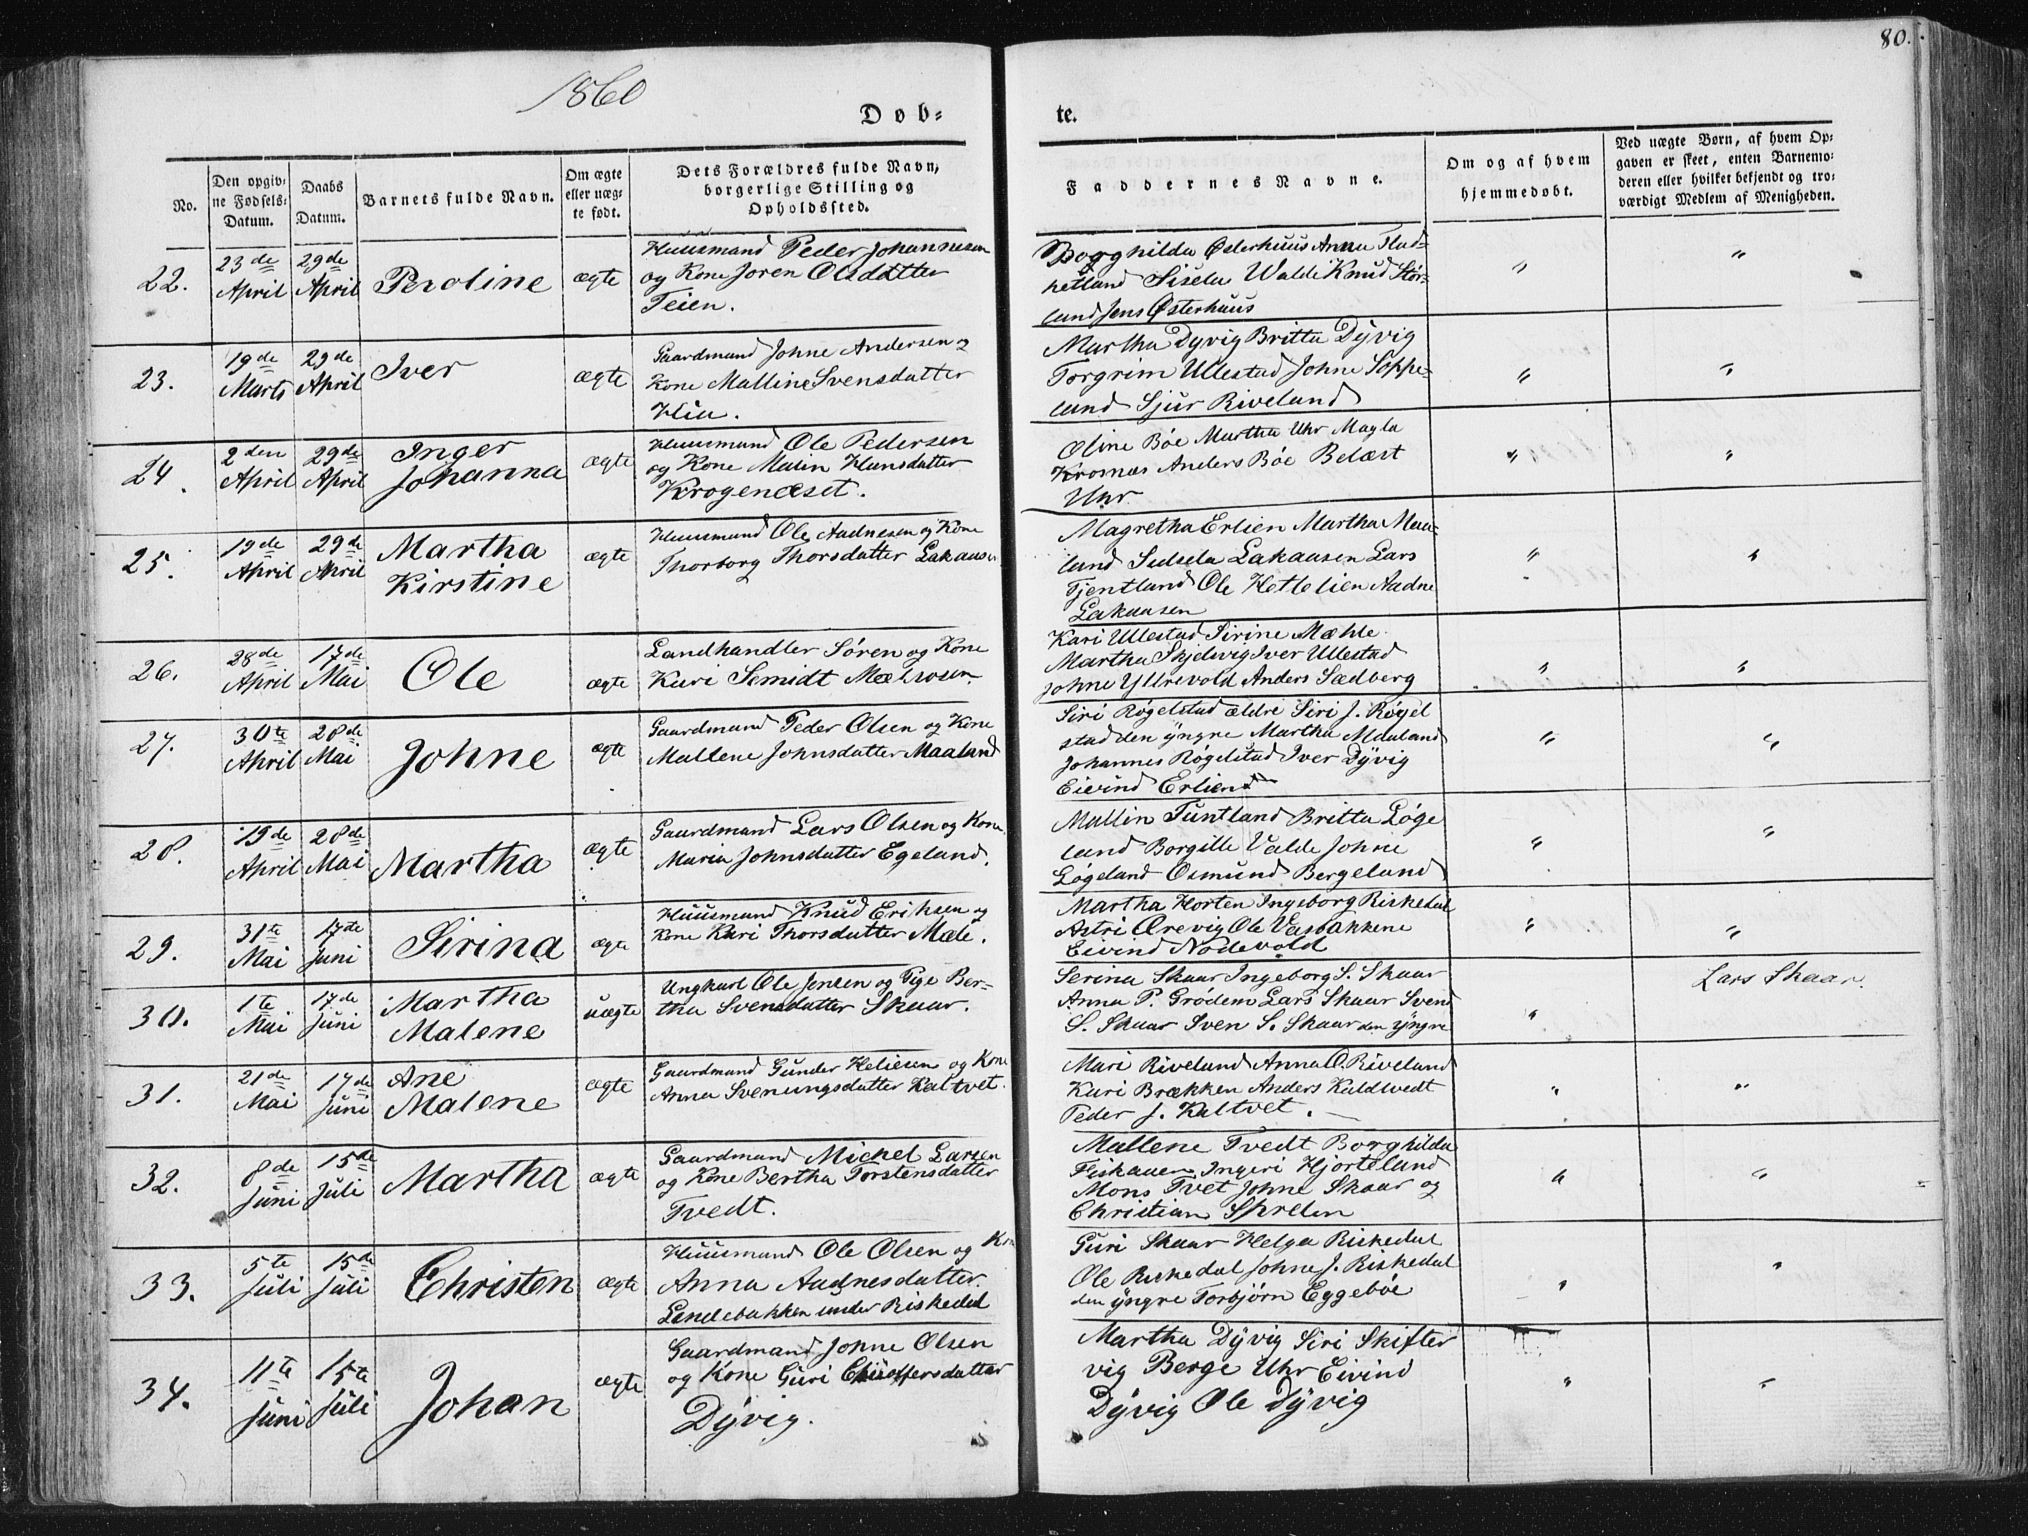 80.
1860
Døb=
te.
No.
Den opgiv-
ne Fødsels-
Datum.
Daabs
Datum.
Barnets fulde Navn.
Om ægte
eller uæg-
te født.
Dets Forældres fulde Navn,
borgerlige Stilling og
Opholdssted.
Faddernes Navne.
Om og af hvem
hjemmedøbt.
Ved uægte Børn, af hvem Op-
gaven er skeet, enten Barnemo-
deren eller hvilket bekjendt og tro-
værdigt Medlem af Menigheden.
22.
23de
April
29de
April
Peroline
ægte
Huusmand Peder Johannesen
og Kone Joren Olsdatter
Teien.
Borghilda Østerhuus Anna Flad=
hetland Sisela Walde Knud Stør-
land Jens Østerhuus
"
"
23.
19de
Marts
29de
April
Iver
ægte
Gaardmand Johne Andersen og
Kone Malline Svensdatter
Hiu.
Martha Dyvig Britta Dÿvig
Torgrim Ullestad Johne Soppe=
land Sjur Riveland
"
"
24.
2den
April
29de
April
Inger
Johanna
ægte
Huusmand Ole Pedersen
og Kone Malin Hansdatter
Krogenæset.
Oline Böe Martha Uhr Magla
Krosnæs Anders Böe Belæst
Uhr
"
"
25.
19de
April
29de
April
Martha
Kirstine
ægte
Huusmand Ole Aadnesen og Kone
Thorborg Thorsdatter Lakausen
Magretha Erlien Martha Maa-
land Sidsela Lakausen Lars
Tjentland Ole Hettelien Aadne
Lakausen
"
"
26.
28de
April
17de
Mai
Ole
ægte
Landhandler Søren og Kone
Kari Semidt Mæhrosen.
Kari Ullestad Sirine Mæhle
Martha Skjelvig Iver Ullestad
Johne Yttrevold Anders Sædberg
"
"
27.
30te
April
28de
Mai
Johne
ægte
Gaardmand Peder Olsen og Kone
Mallene Johnsdatter Maaland
Siri Røgelstad ældre Siri J. Røgel
stad den yngre Martha Maaland
Johannes Røgelstad Iver Dÿvig
Eivind Erlien
"
"
28.
19de
April
28de
Mai
Martha
ægte
Gaardmand Lars Olsen og Kone
Maria Johnsdatter Egeland.
Mallin Tuntland Britta Løge
land Borgille Valde Johne
Løgeland Osmund Bergeland
"
"
29.
31te
Mai
17de
Juni
Sirina
ægte
Huusmand Knud Eriksen og
Kone Kari Thorsdatter Mæle.
Martha Horten Ingeborg Riskedal
Astri Ørevig Ole Vasbakkene
Eivind Nodevold
"
"
30.
1te
Mai
17de
Juni
Martha
Malene
uægte
Ungkarl Ole Jensen og Pige Ber-
tha Svensdatter Skaar.
Serina Skaar Ingeborg S. Skaar
Anna P. Grödem Lars Skaar Svend
S. Skaar Sven S. Skaar den yngre
"
Lars Skaar.
31.
21de
Mai
17de
Juni
Ane
Malene
ægte
Gaardmand Gunder Heliesen og Kone
Anna Svenungsdatter Kaltvet.
Mari Riveland Anna O. Riveland
Kari Brækken Anders Kaldvedt
Peder J. Kaltvet.
"
"
32.
8de
Juni
15de
Juli
Martha
ægte
Gaardmand Michel Larsen
og Kone Bertha Torstensdatter
Tvedt.
Mallene Tvedt Borghilda
Fiskauen Ingeri Hjorteland
Mons Tvet Johne Skaar og
Christian
"
"
33.
5te
Juli
15de
Juli
Christen
ægte
Huusmand Ole Olsen og Kone
Anna Aadnesdatter
Lendebakken under Riskedal
Guri Skaar Helga Riskedal
Ole Riskedal Johne J. Riskedal
den yngre Torbjörn Eggeböe
"
"
34.
11te
Juni
15te
Juli
Johan
ægte
Gaardmand Johne Olsen
og Kone Guri Christofersdatter
Dÿvig.
Martha Dÿvig Siri Skifter
vig Berge Uhr Eivind
Dÿvig Ole Dÿvig
"
"